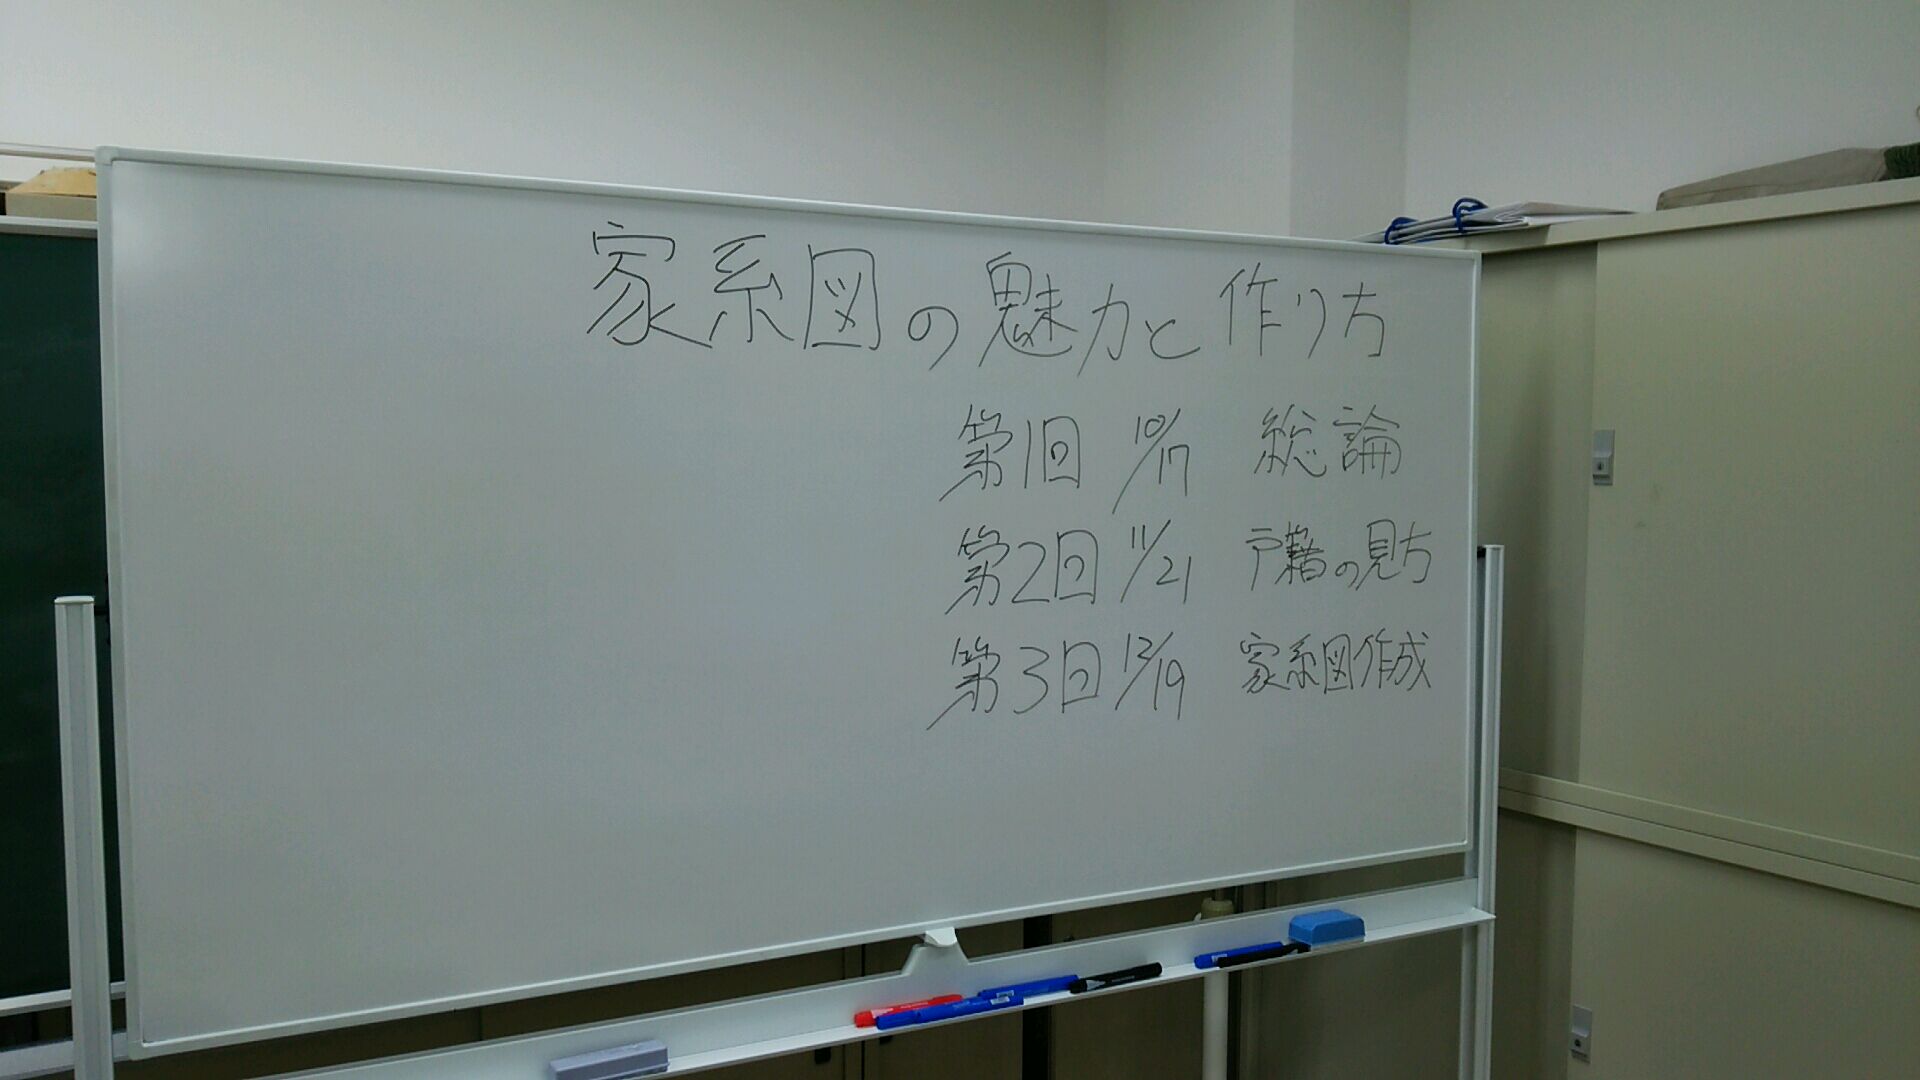 家系図の魅力と作り方
第1回 10/17 総論
第2回 11/21 戸籍の見方
第3回 12/19 家系図作成